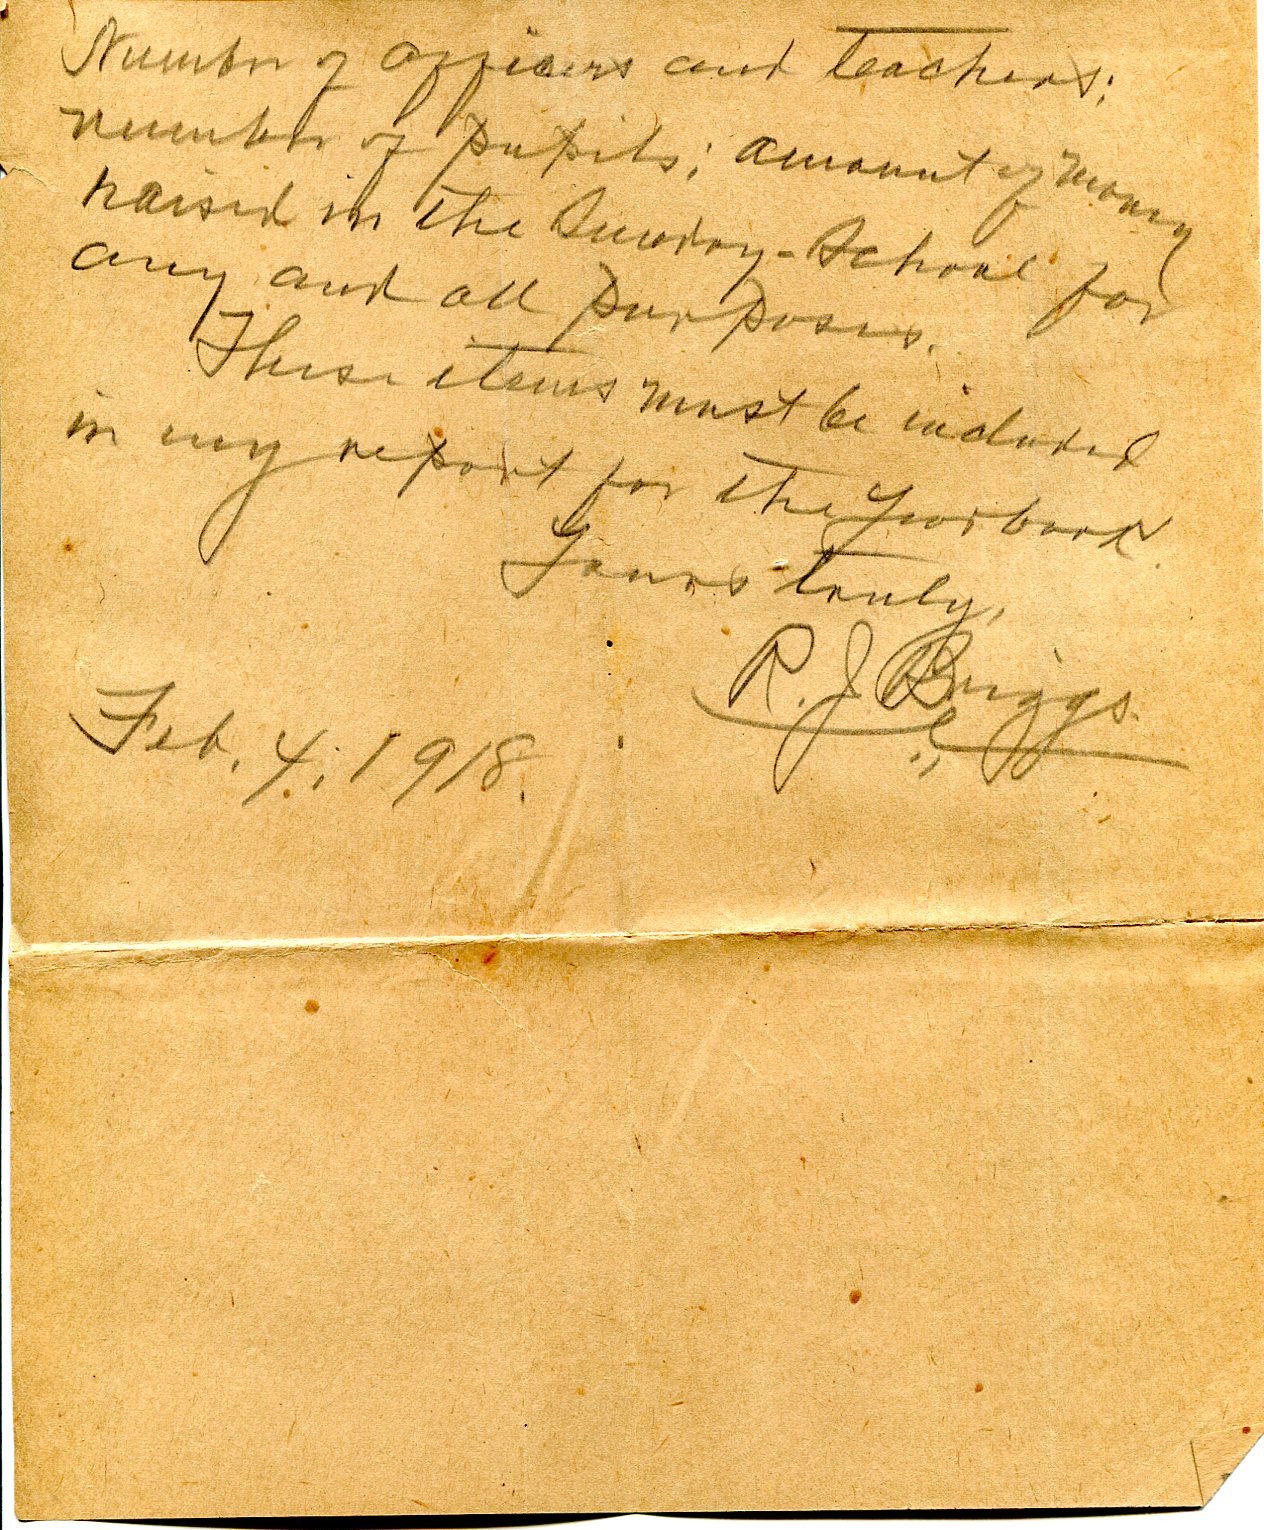 Number of officers and teachers;
number of pupils; amount of money
raised in the Sunday-School for
any and all purposes.
These items must be included
in my report for the Yearbook.
Yours truly,
R. J. Briggs.
Feb. 4, 1918.